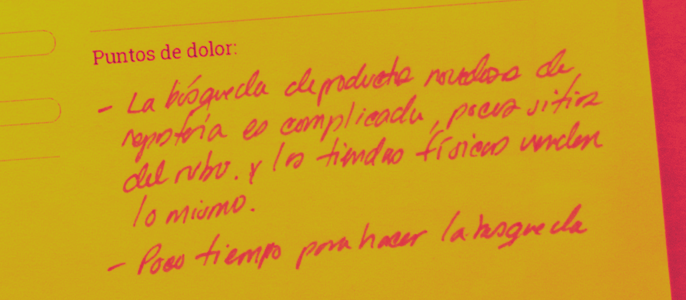 Puntos de dolor:
- La búsqueda de productos novedosos de
repostería es complicada, pocos sitios
del rubro. y las tiendas físicas venden
lo mismo.
- Poco tiempo para hacer la busqueda